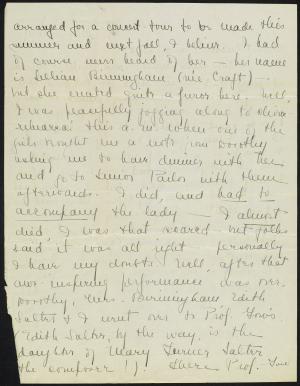 arranged for a concert tour to be made this
summer and next fall, I believe. I had
of course never heard of her — her name
is Lillian Birmingham (née Craft) —
but she created quite a furor here. Well,
I was peacefully jogging along to
this a.m. when one of the
girls brought me a note from Dorothy
asking me to have dinner with her
and go to Senior Parlor with them
afterwards. I did, and had to
accompany the lady — I almost
died, I was that scared but folks
said it was all right – personally
I have my doubts. Well, after that
awe-inspiring performance was over,
Dorothy, Mrs. Birmingham, Edith
Salter & I went over to Prof.
Edith Salter, by the way, is the
daughter of Mary Turner Salter
the composer !). There Prof.